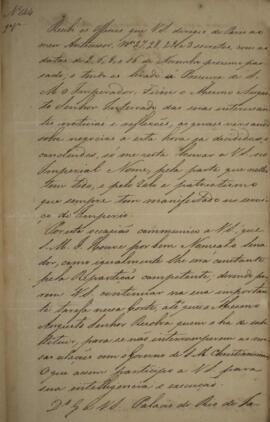 Nº 164
Recebi os officios que V.S. dirigio de Paris ao
meu Antecessor, Nos 27, 28, 29 e 3 secretos, com as
datas de 2, 6, 8 e 16 de Novembro proximo pas-
sado, e tendo os levado á Presença de S.
M. O Imperador. Ficou o Mesmo Augus-
to Senhor Inteirado das suas interessan-
tes noticias e reflexões, as quaes versando
sobre negocios a esta hora já decididos e
concluidos, só me resta louvar a V.S. no
Imperial Nome, pela parte que nelles
tem tido, e pelo zelo e patriotismo
que sempre tem manifestado no servi-
ço do Imperio.
Por esta occasião communico a V.S. que
S.M.I. Houve por bem Nomeal-o Sena-
dor, como igualmente lhe será constante
pela Repartição competente, devendo po-
rem V.S. continuar na sua importan-
te tarefa nessa Corte, até que o Mesmo
Augusto Senhor Resolva quem o ha de subs-
tituir, para se não interromperem as nos-
sas relações com o Governo de S.M. Christianissima.
O que assim participo a V.S. para
sua intelligencia e execução.
Ds. G. e V.S. Palacio do Rio de Ja-